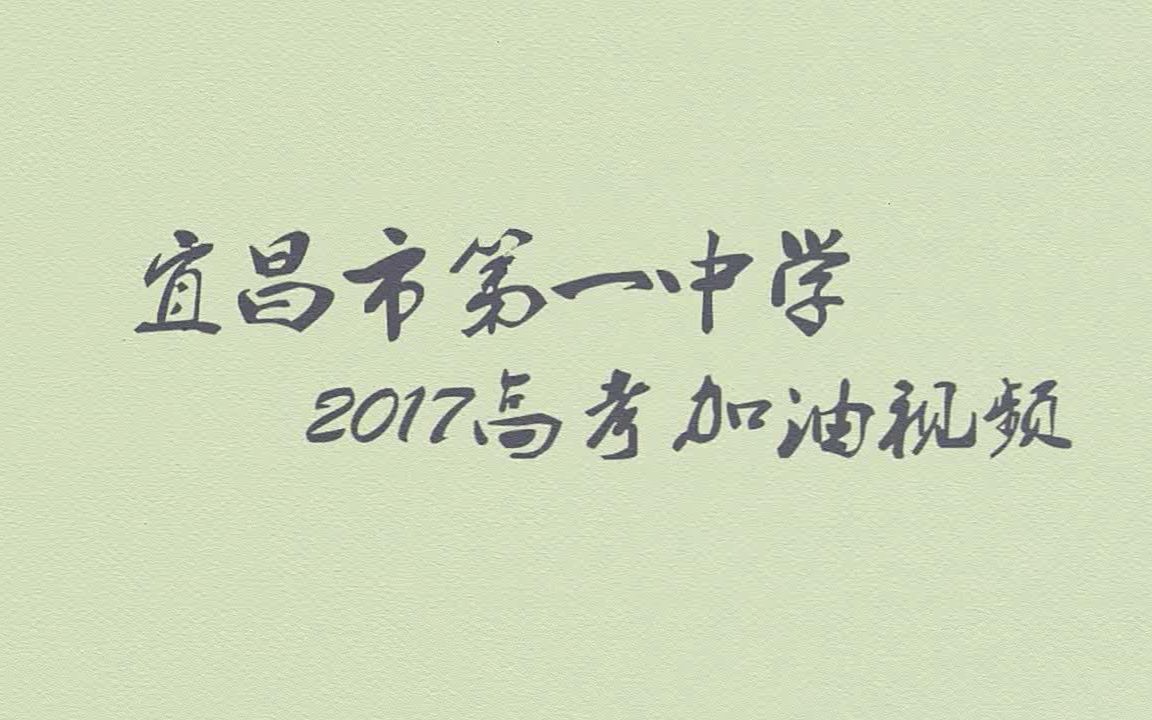 宜昌市第一中学
2017高考加油视频